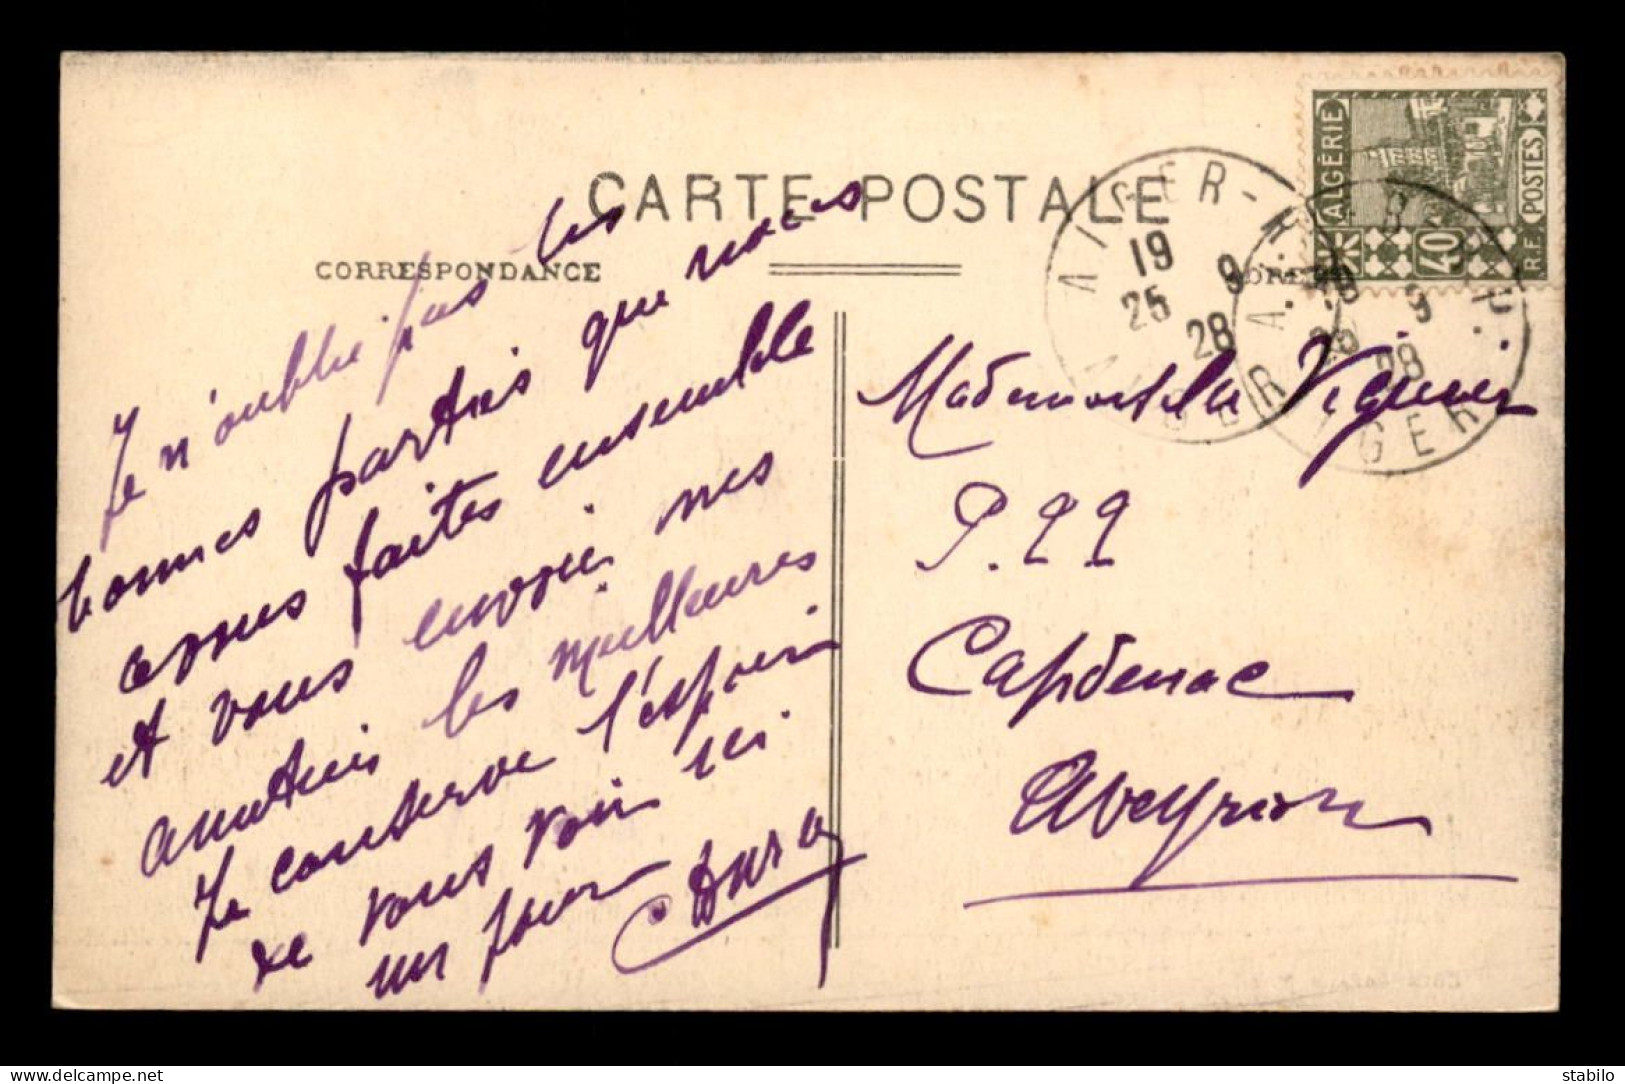 CARTE POSTALE
CORRESPONDANCE
Je n'oublie pas les
bonnes parties que nous
avons faites ensemble
et vous envoie mes
amitiés les meilleures
Je conserve l'espoir
de vous voir ici
un jour
ALGER-R.P.
19
25 9
28
ALGER
28
ALGER
ALGÉRIE
POSTES
R.F.
40
Mademoiselle Viguier
P.
Capdenac
Aveyron
www.delcampe.net
stabilo